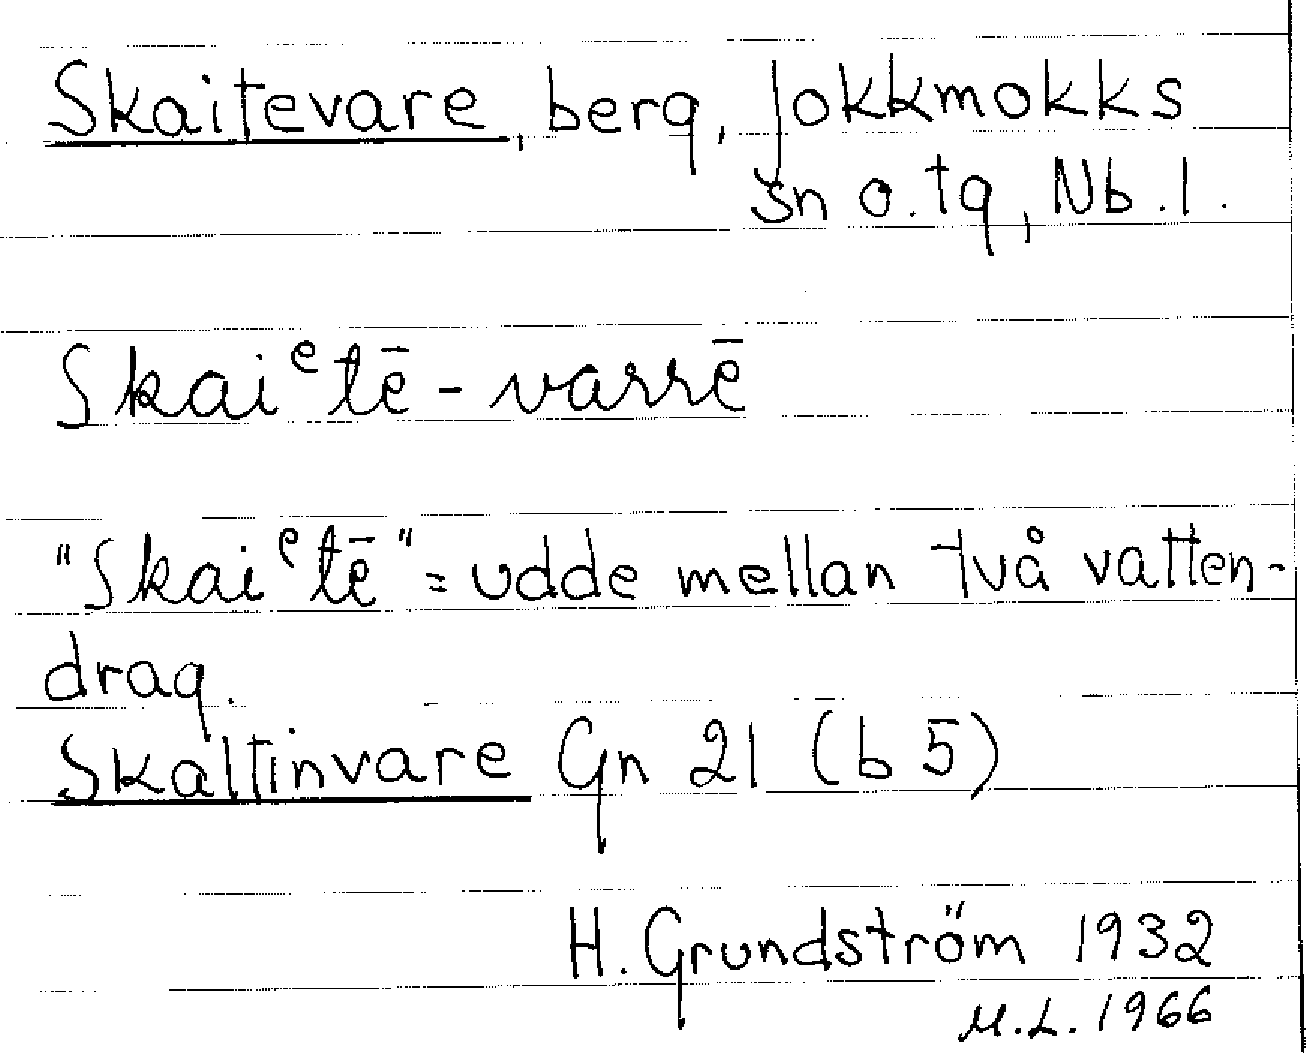 Skaitevare, berg, Jokkmokks
sn o. tg, Nb. l.
Skaiᵉtē-varrē
"Skaiᵉtē" = udde mellan två vatten-
drag.
Skaltinvare Gn 21 (b 5)
H. Grundström 1932
M.L. 1966